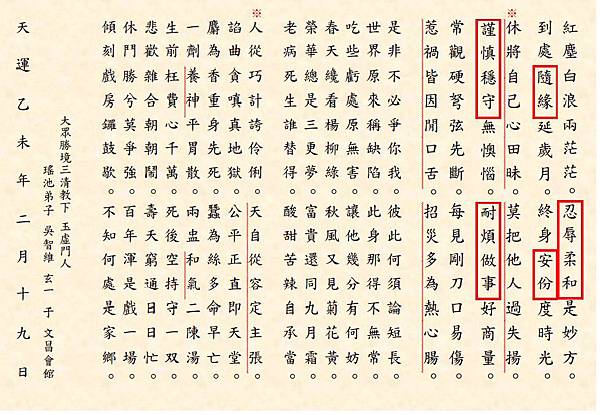 紅塵白浪兩茫茫。忍辱柔和是妙方。
到處隨緣延歲月。終身安份度時光。
※休將自己心田昧。莫把他人過失揚。
謹慎穩守無懊惱。耐煩做事好商量。
常觀硬弩弦先斷。每見剛刀口易傷。
惹禍皆因閒口舌。招災多為熱心腸。
是非不必爭你我。彼此何須論短長。
世界原來稱缺陷。此身那得不無常。
吃些虧處原無害。讓他幾分有何妨。
春天纔看楊柳綠。秋風又見菊花黃。
榮華總是三更夢。富貴還同九月霜。
老病死生誰替得。酸甜苦辣自承當。
※人從巧計誇伶俐。天自從容定主張。
諂曲貪嗔真地獄。公平正直即天堂。
麝為香重身先死。蠶為絲多命早亡。
一劑養神平胃散。兩盅和氣二陳湯。
生前枉費心千萬。死後空持守一双。
悲歡離合朝朝鬧。壽夭窮通日日忙。
休鬥勝兮莫爭強。百年渾是戲一場。
傾刻戲房鑼鼓歇。不知何處是家鄉。
大眾勝境三清教下 玉虛門人
瑤池弟子 吳智維 玄一子 文昌會館
天運乙未年二月十九日